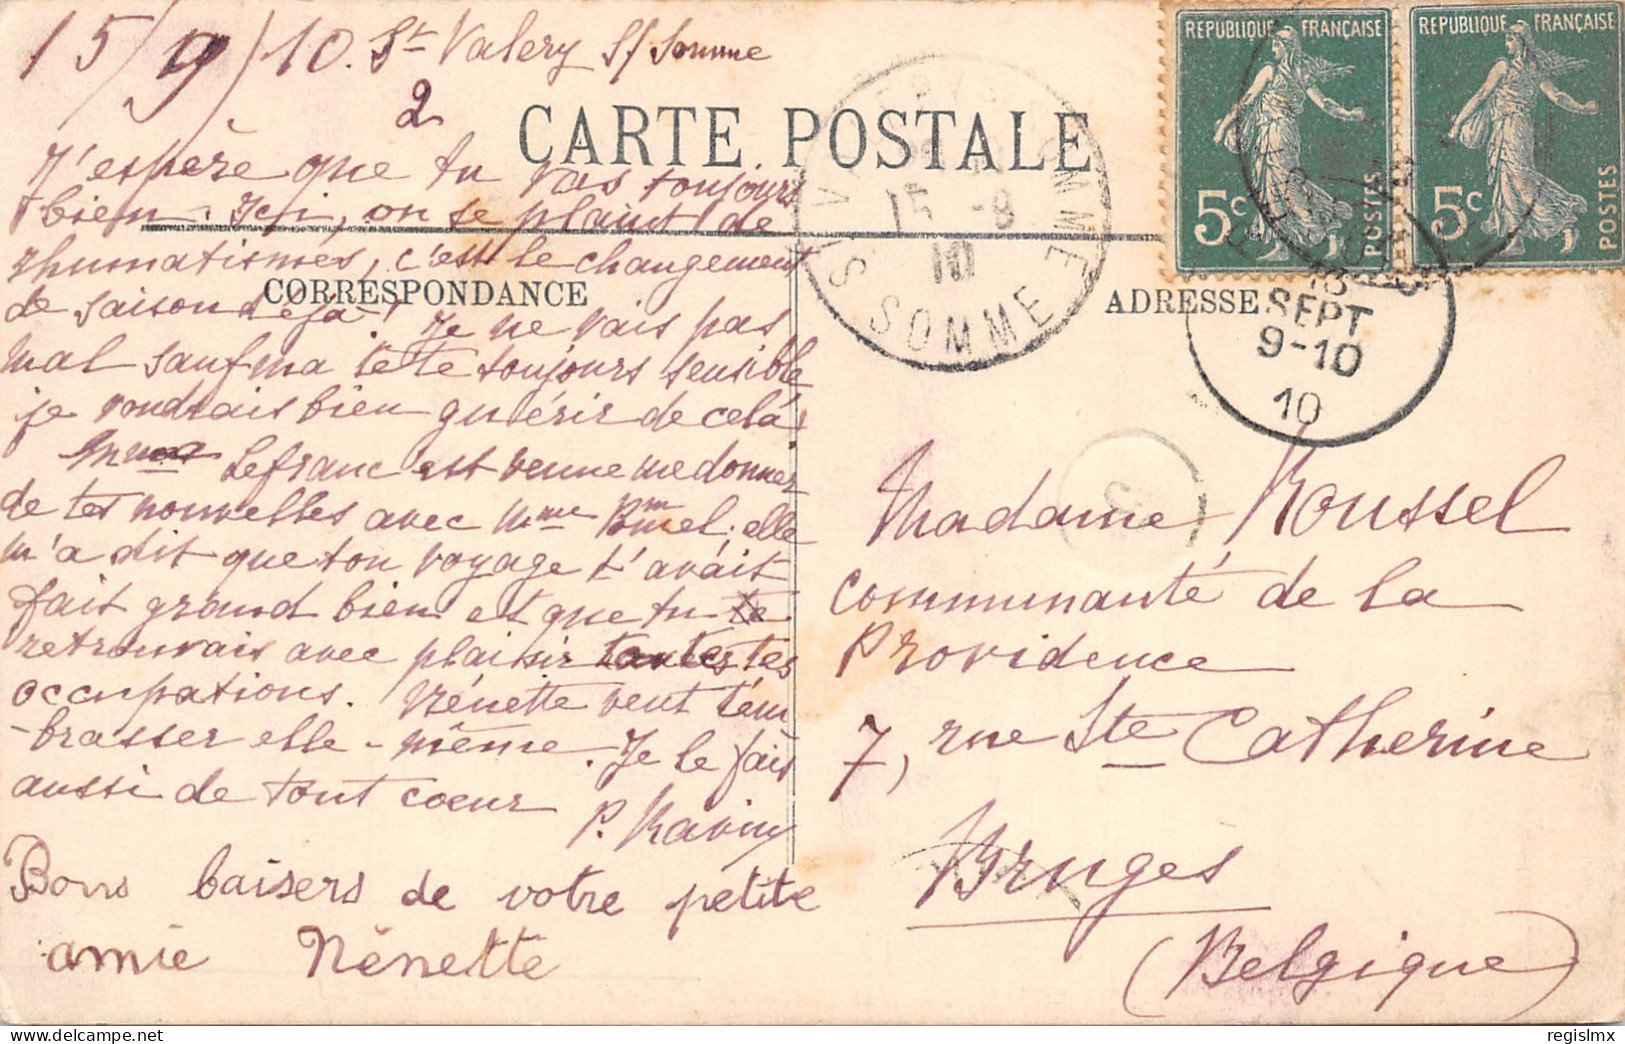 15/9/10. St Valery s/ Somme
2
CARTE POSTALE
J'espère que tu vas toujours
bien. Ici, on se plaint de
rhumatismes, c'est le changement
de saison déjà! Je ne vais pas
mal sauf ma tête toujours sensible
je voudrais bien guérir de celà!
Mme Lefranc est venue me donner
de tes nouvelles avec Mme elle
m'a dit que ton voyage t'avait
fait grand bien et que tu te
retrouvais avec plaisir toutes tes
occupations. Nénette veut t'em
-brasser elle-même. Je le fais
aussi de tout coeur
P. Raviny
Bons baisers de votre petite
amie Nénette
CORRESPONDANCE
ADRESSE
REPUBLIQUE FRANÇAISE
5c
POSTES
REPUBLIQUE FRANÇAISE
5c
POSTES
15 -9
10
SOMME
SEPT
9-10
10
Madame Roussel
communauté de la
Providence
7, rue Ste Catherine
Bruges
(Belgique)
regislmx